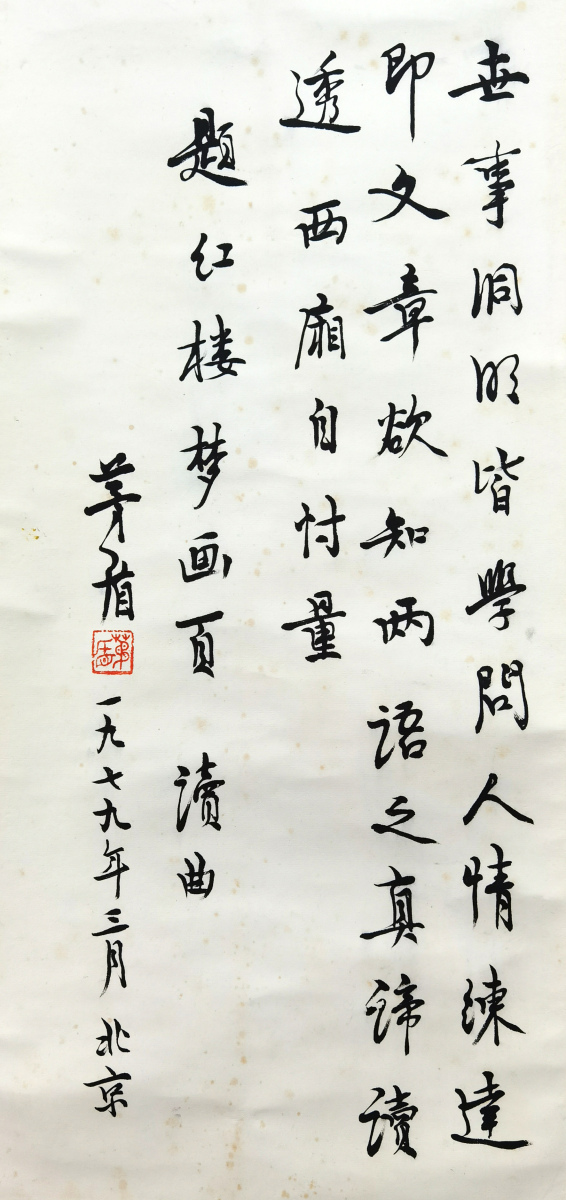 世事洞明皆學問人情练達
即文章欲知两語之真諦讀
透西廂自忖量
题红楼梦画页 讀曲
茅盾 一九七九年三月 北京